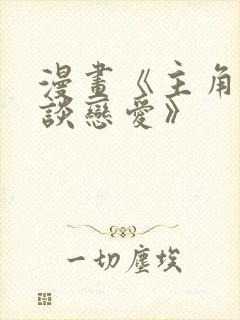 漫畫《主角
談戀愛》
一切塵埃